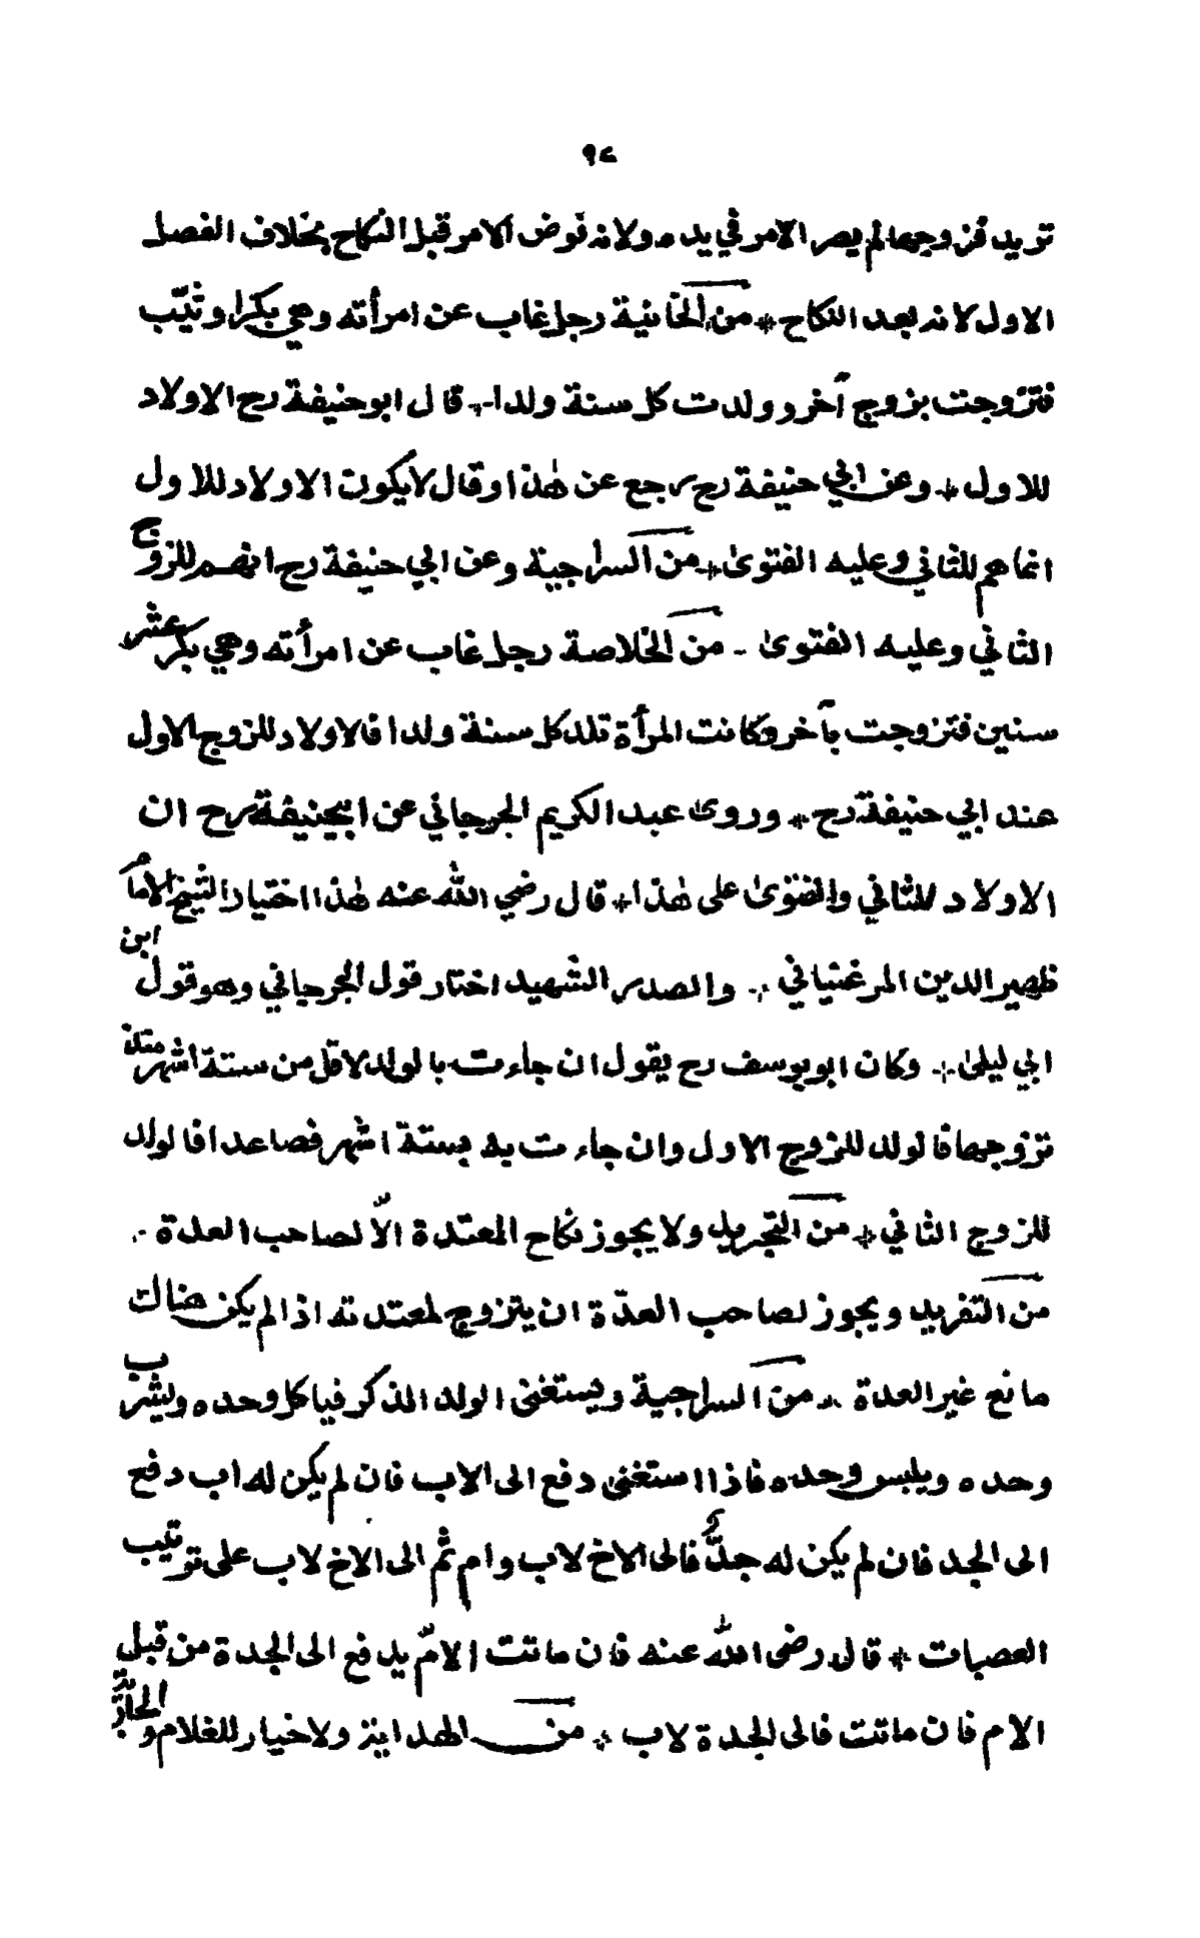 ٩٢
تريد فزوجها لم يصر الامر في يده ولانه فوض الامر قبل النكاح بخلاف الفصل
الاول لانه بعد النكاح * من الخانية رجل غاب عن امرأته وهي بكر او ثيّب
فتزوجت بزوج آخر وولدت كل سنة ولدا * قال ابو حنيفة رح الاولاد
للاول * وعن ابي حنيفة رح رجع عن هٰذا وقال لا يكون الاولاد للاول
انما هم للثاني وعليه الفتوىٰ * من السراجية وعن ابي حنيفة رح انهم للزوج
الثاني وعليه الفتوىٰ - من الخلاصة رجل غاب عن امرأته وهي بكر عشر
سنين فتزوجت بآخر وكانت المرأة تلد كل سنة ولدا فالاولاد للزوج الاول
عند ابي حنيفة رح * وروىٰ عبد الكريم الجرجاني عن ابيحنيفة رح ان
الاولاد للثاني والفتوىٰ على هٰذا * قال رضي اللّٰه عنه هٰذا اختيار الشيخ الامام
ظهير الدين المرغنياني * والصدر الشهيد اختار قول الجرجاني وهو قول ابن
ابي ليلىٰ * وكان ابو يوسف رح يقول ان جاءت بالولد لاقل من ستة اشهر منذ
تزوجها فالولد للزوج الاول وان جاءت به بستة اشهر فصاعدا فالولد
للزوج الثاني * من التجريد ولا يجوز نكاح المعتدة الاّ لصاحب العدة *
من التفريد ويجوز لصاحب العدّة ان يتزوج لمعتدته اذا لم يكن هناك
مانع غير العدة * من السراجية ويستغنى الولد الذكر فياكل وحده ويشرب
وحده ويلبس وحده فاذا استغنى دفع الى الاب فان لم يكن له اب دفع
الى الجد فان لم يكن له جدٌّ فالى الاخ لاب وام ثم الى الاخ لاب على ترتيب
العصبات * قال رضى اللّٰه عنه فان ماتت الامّ يدفع الى الجدة من قبل
الام فان ماتت فالى الجدة لاب * من الهداية ولا خيار للغلام و